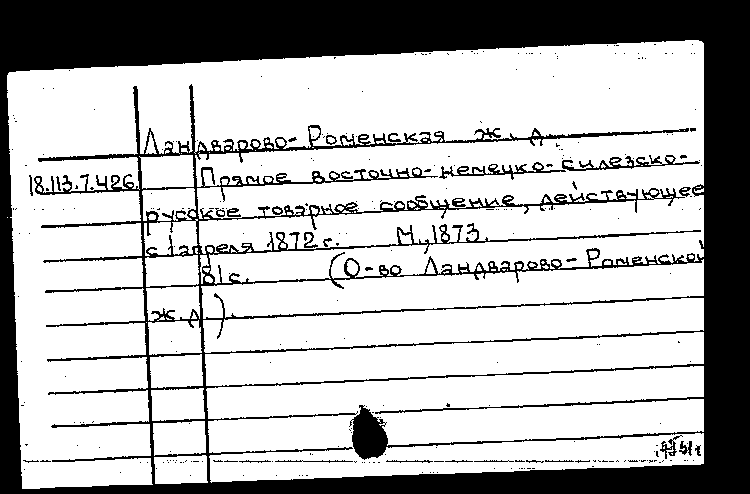 Ландварово-Роменская ж. д.
18.113.7.426. Прямое восточно-немецко-силезско-
русское товарное сообщение, действующее
с 1 апреля 1872 г. М., 1873.
81 с. (О-во Ландварово-Роменской
ж. д).